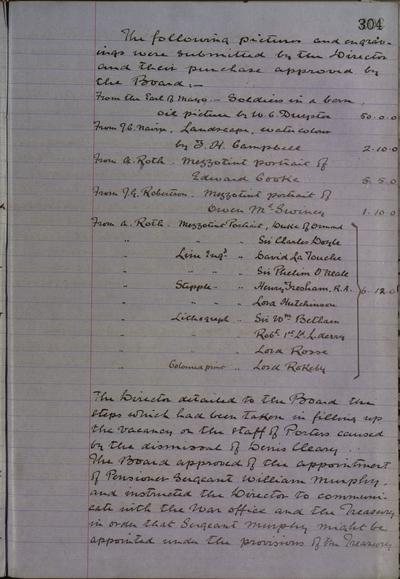 304
The following pictures and engrav-
ings were submitted by the Director
and their purchase approved by
the Board:—
From the Earl of Mayo — Soldiers in a barn,
oil picture by W. C. Duyster 50.0.0
From J.G. Nairn, Landscape, water colour
by J. H. Campbell 2.10.0
From A. Roth. Mezzotint portrait of
Edward Cooke 5.5.0
From J.G. Robertson. Mezzotint portrait of
Owen McSwiney 1.10.0
From A. Roth. Mezzotint Portrait, Duke of Ormond
" " " Sir Charles Doyle
" Line Engd " David La Touche
" " " Sir Phelim O'Neale
" Stipple " Henry Tresham, R.A. 6.12.0
" " " Lord Hutchinson
" Lithograph " Sir Wm Betham
" " Robt 1st Ld L.derry
" " Lord Rosse
" Coloured print " Lord Rokeby
The Director detailed to the Board the
steps which had been taken in filling up
the vacancy on the staff of Porters caused
by the dismissal of Denis Cleary.
The Board approved of the appointment
of Pensioner Sergeant William Murphy
and instructed the Director to communi-
cate with the War office and the Treasury
in order that Sergeant Murphy might be
appointed under the provisions of the Treasury